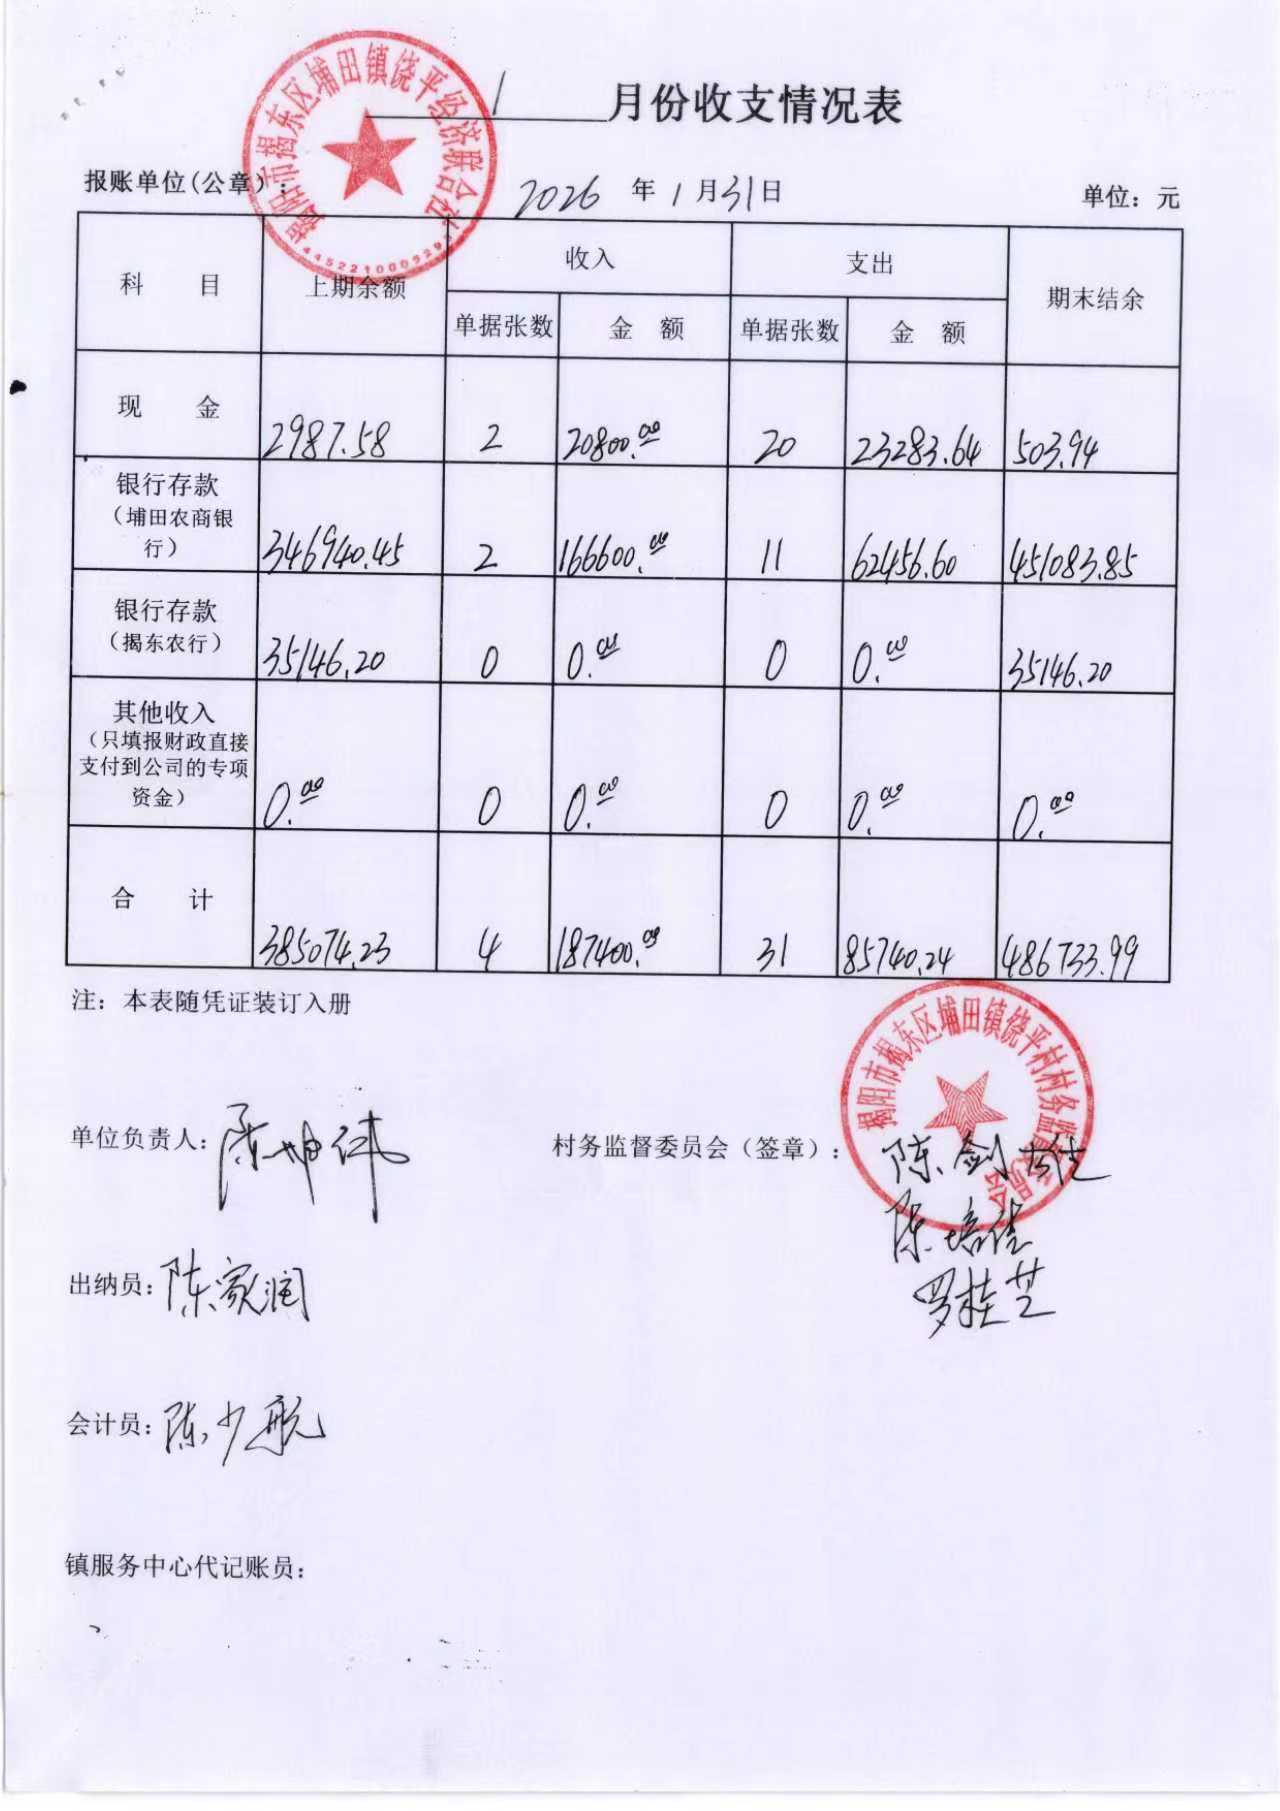 1 月份收支情况表
揭阳市揭东区埔田镇饶平经济联合社
报账单位(公章): 2026 年 1 月 31 日 单位: 元
科 目 上期余额 收入 支出 期末结余
单据张数 金 额 单据张数 金 额
现 金 2987.58 2 20800.00 20 23283.64 503.94
银行存款
(埔田农商银
行) 346940.45 2 166600.00 11 62456.60 451083.85
银行存款
(揭东农行) 35146.20 0 0.00 0 0.00 35146.20
其他收入
(只填报财政直接
支付到公司的专项
资金) 0.00 0 0.00 0 0.00 0.00
合 计 385074.23 4 187400.00 31 85740.24 486733.99
注: 本表随凭证装订入册
揭阳市揭东区埔田镇饶平村村务监督委员会
单位负责人: 村务监督委员会(签章): 陈剑
陈培佳
罗桂芝
出纳员: 陈家润
会计员: 陈少航
镇服务中心代记账员: